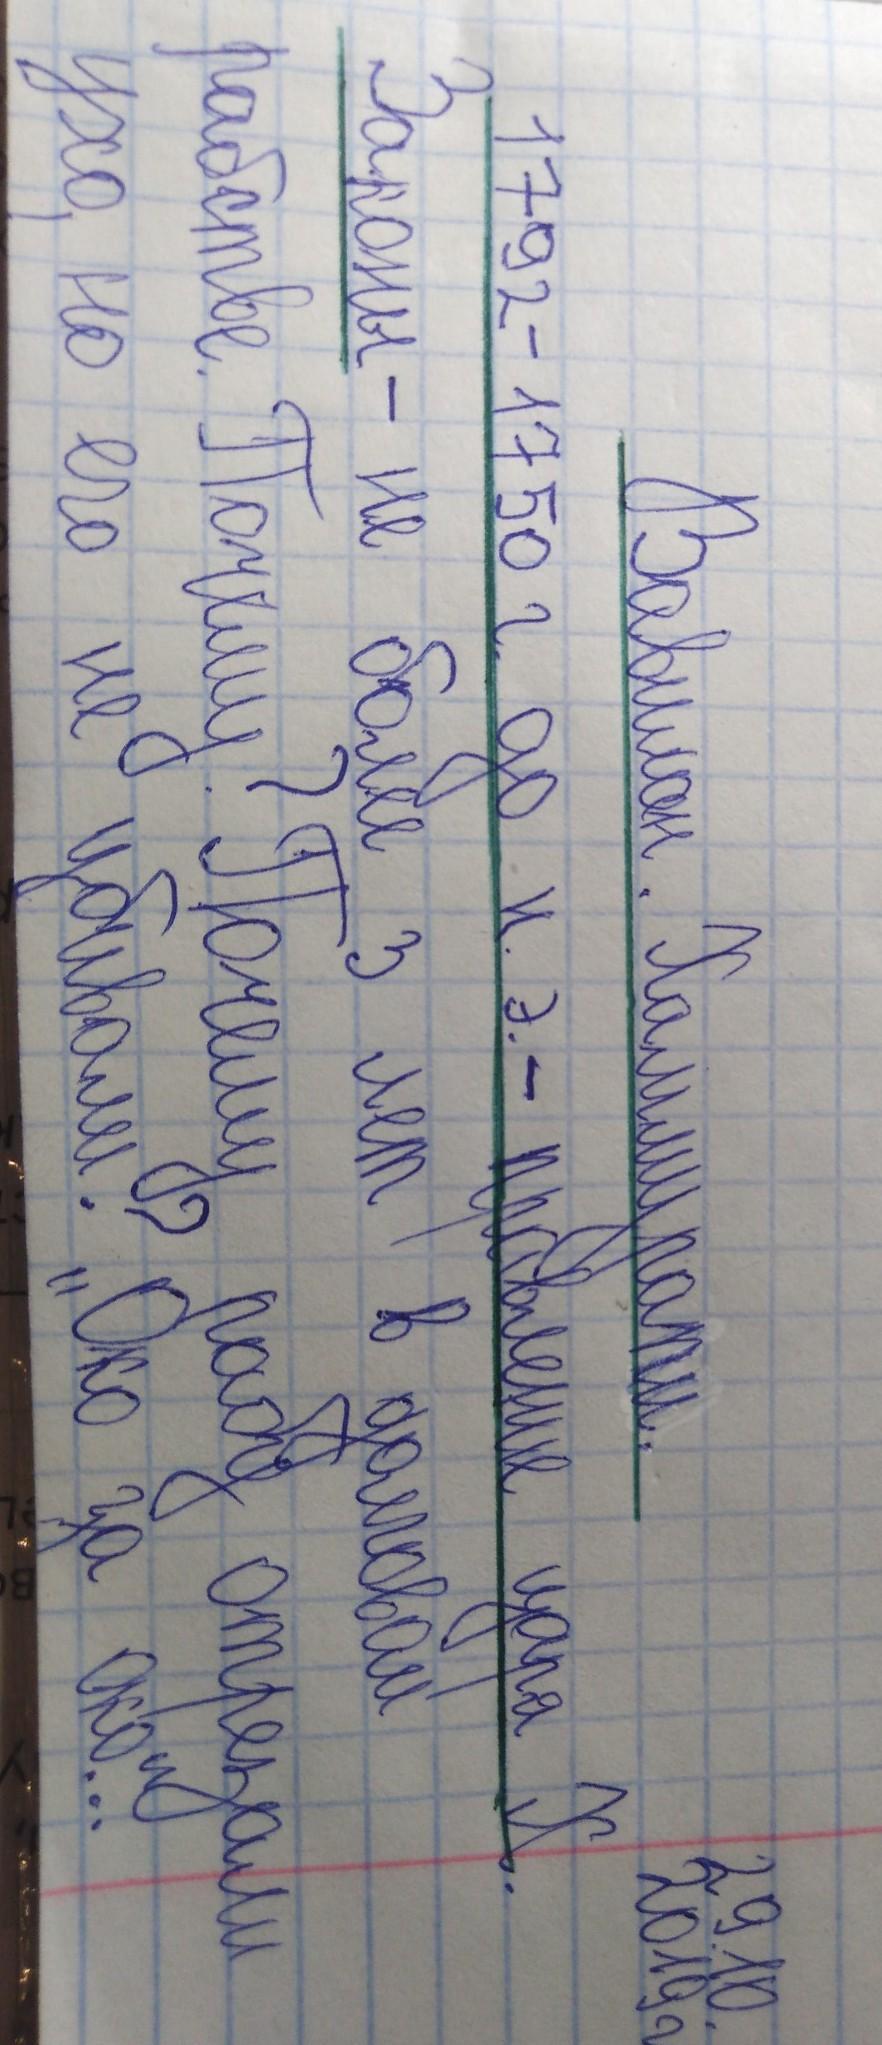 29.10.
2019г
Вавилон. Хаммурапи.
1792-1750 г. до н. э. - правление царя Х.
Законы - не более 3 лет в долговом
рабстве. Почему? Почему рабу отрезали
ухо, но его не убивали. "Око за око"...